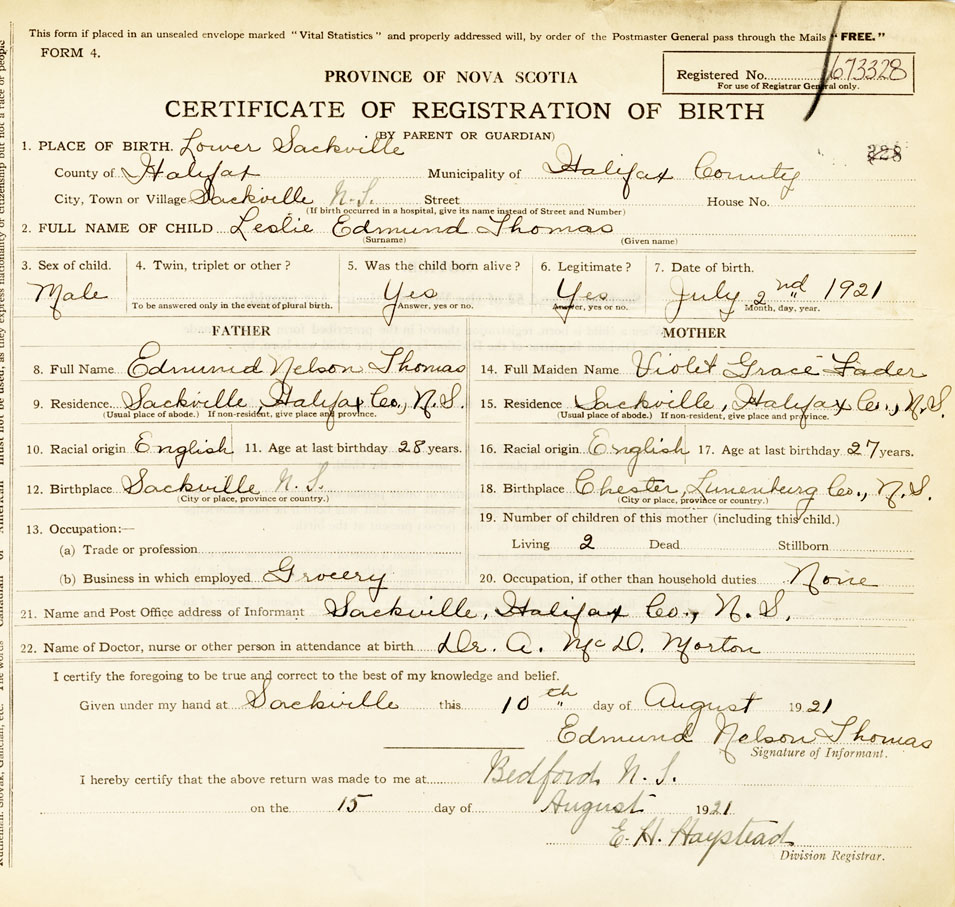 This form if placed in an unsealed envelope marked "Vital Statistics" and properly addressed will, by order of the Postmaster General pass through the Mails "FREE."
FORM 4.
PROVINCE OF NOVA SCOTIA
Registered No. 673328
For use of Registrar General only.
CERTIFICATE OF REGISTRATION OF BIRTH
(BY PARENT OR GUARDIAN)
1. PLACE OF BIRTH. Lower Sackville
328
County of Halifax Municipality of Halifax County
City, Town or Village Sackville N.S. Street House No.
(If birth occurred in a hospital, give its name instead of Street and Number)
2. FULL NAME OF CHILD Leslie Edmund Thomas
(Surname) (Given name)
3. Sex of child. 4. Twin, triplet or other? 5. Was the child born alive? 6. Legitimate? 7. Date of birth.
Male Yes Yes July 2nd 1921
To be answered only in the event of plural birth. Answer, yes or no. Answer, yes or no. Month, day, year.
FATHER MOTHER
8. Full Name Edmund Nelson Thomas 14. Full Maiden Name Violet Grace Fader
9. Residence Sackville Halifax Co., N.S. 15. Residence Sackville, Halifax Co., N.S.
(Usual place of abode.) If non-resident, give place and province. (Usual place of abode.) If non-resident, give place and province.
10. Racial origin English 11. Age at last birthday 28 years. 16. Racial origin English 17. Age at last birthday 27 years.
12. Birthplace Sackville N.S. 18. Birthplace Chester, Lunenburg Co., N.S.
(City or place, province or country.) (City or place, province or country.)
13. Occupation:— 19. Number of children of this mother (including this child.)
(a) Trade or profession Living 2 Dead Stillborn
(b) Business in which employed Grocery 20. Occupation, if other than household duties None
21. Name and Post Office address of Informant Sackville, Halifax Co., N.S.
22. Name of Doctor, nurse or other person in attendance at birth Dr. A. McD. Morton
I certify the foregoing to be true and correct to the best of my knowledge and belief.
Given under my hand at Sackville this 10th day of August 1921
Edmund Nelson Thomas
Signature of Informant.
I hereby certify that the above return was made to me at Bedford N.S.
on the 15 day of August 1921
E. H. Haystead
Division Registrar.